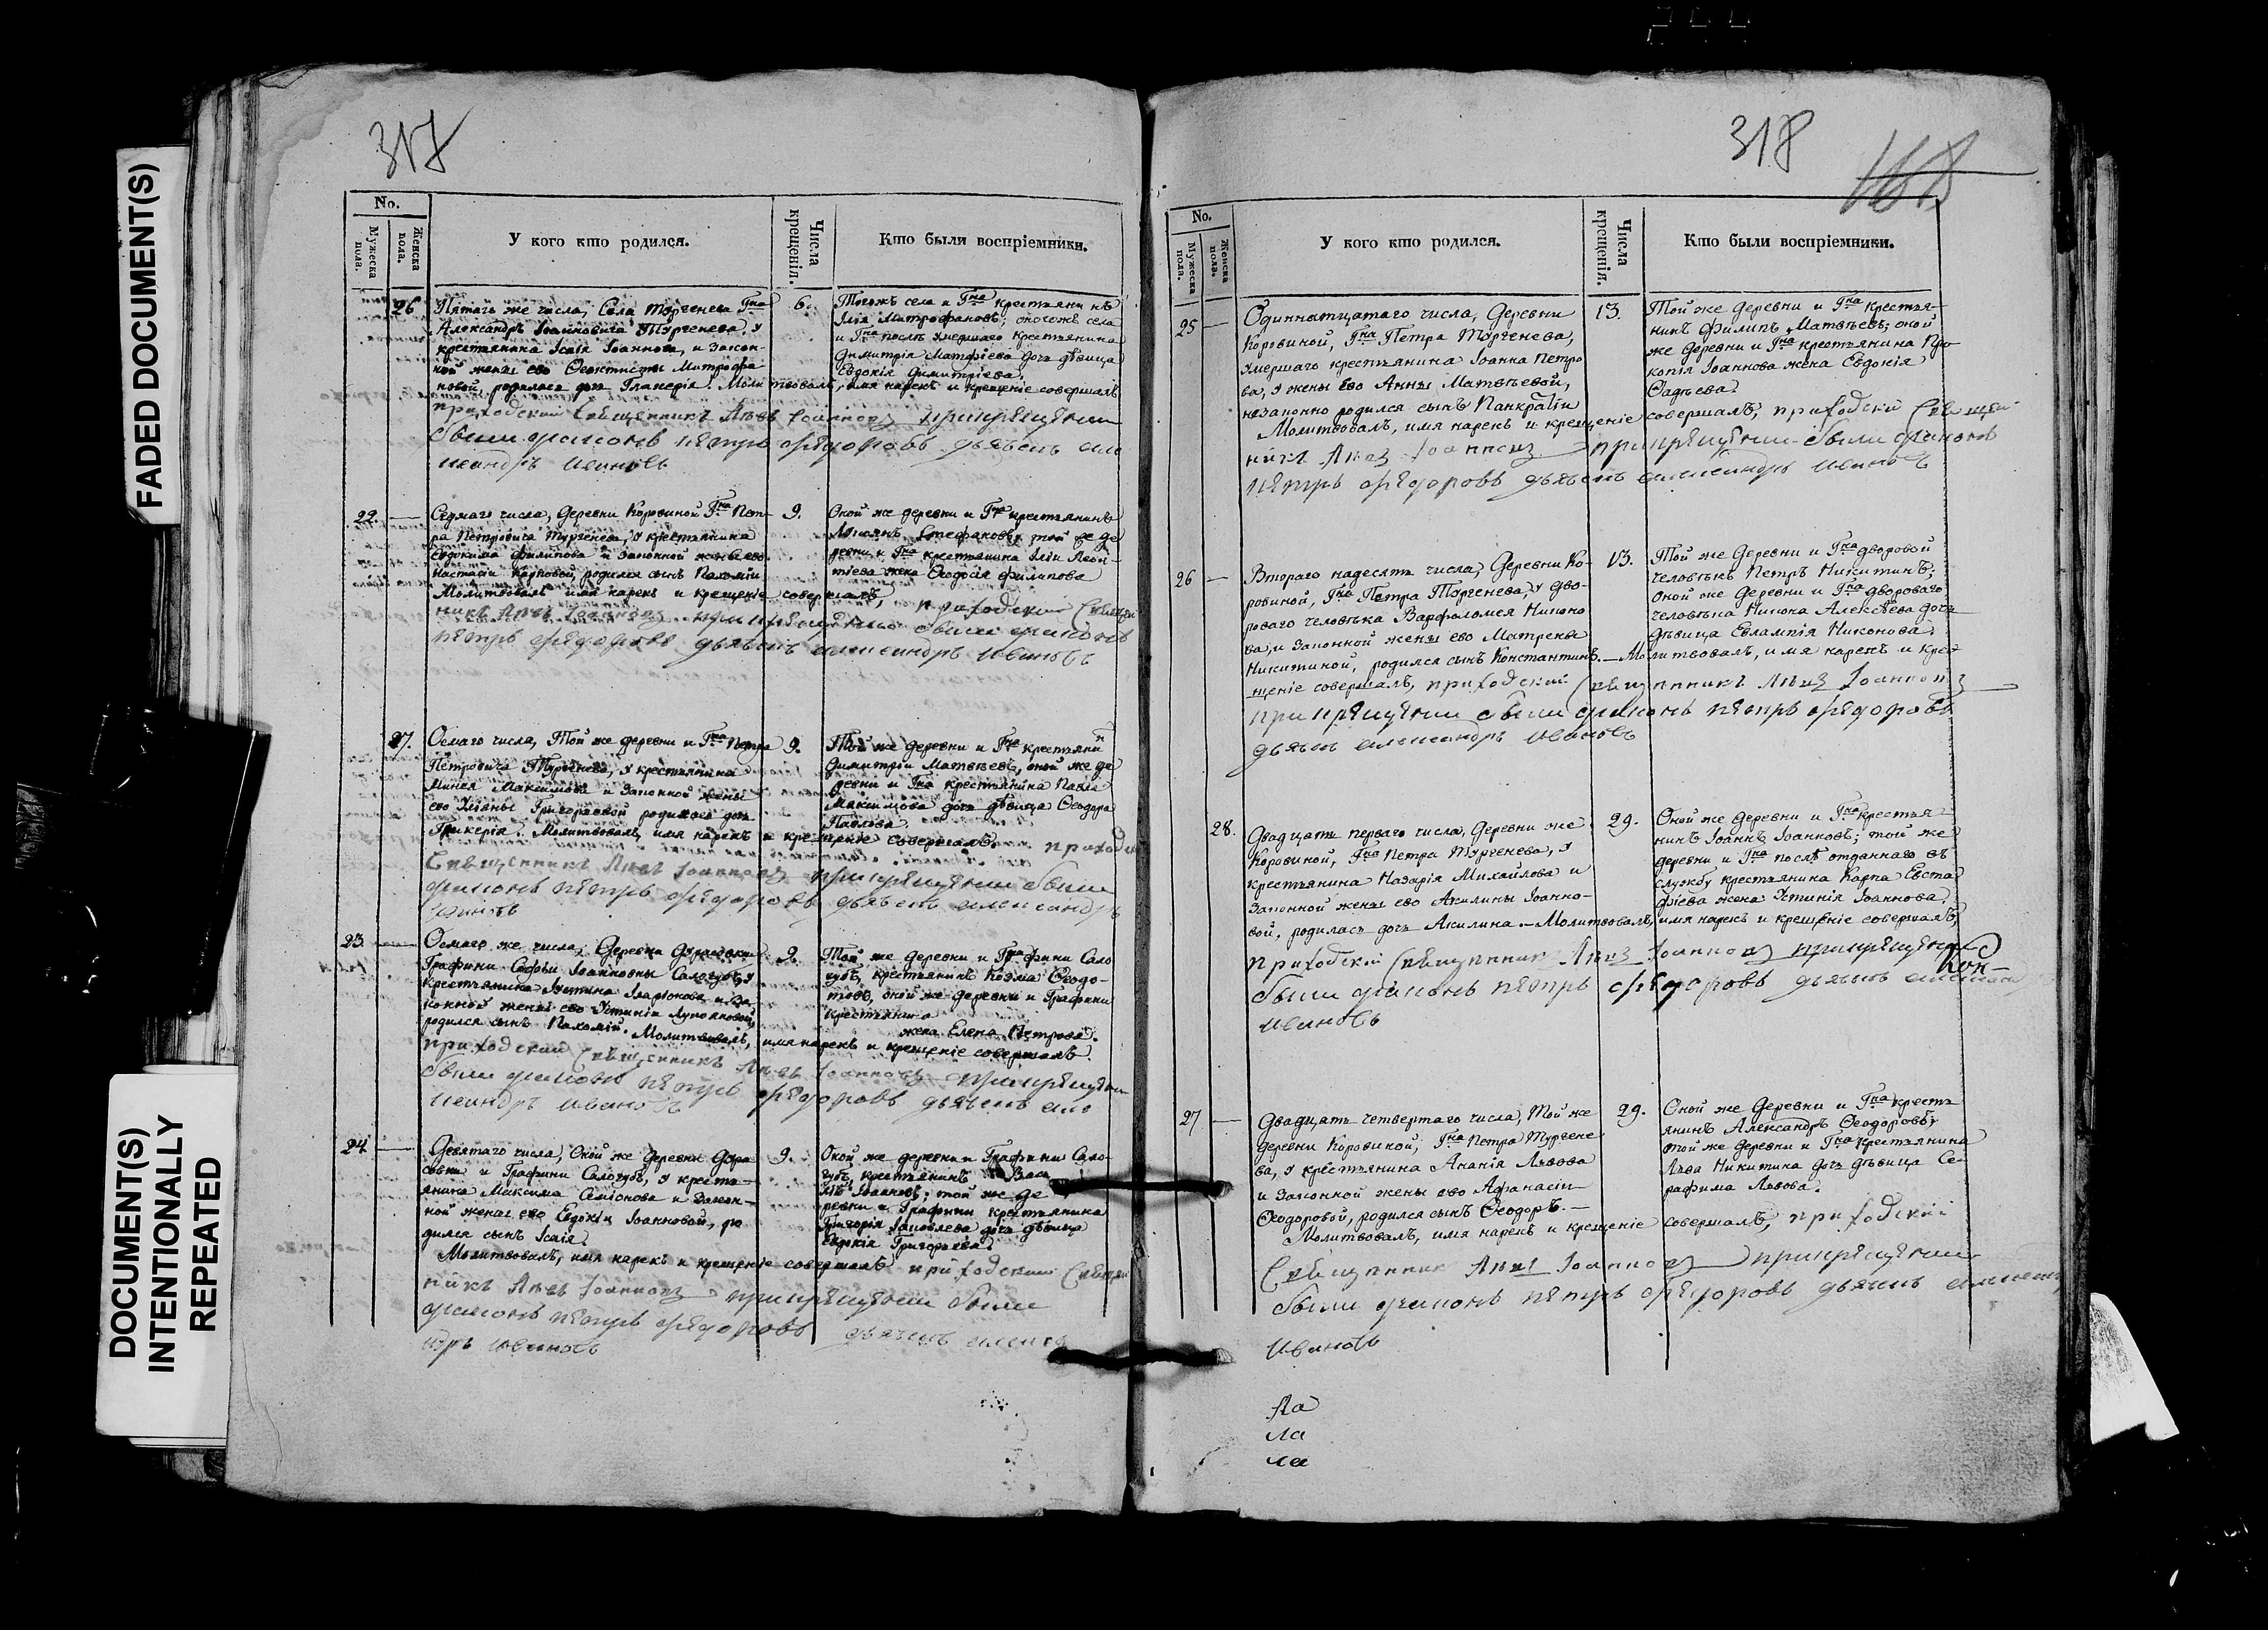 FADED DOCUMENT(S)
DOCUMENT(S)
INTENTIONALLY
REPEATED
317
No.
Мужеска пола.
Женска пола.
У кого кто родился.
Числа крещенія.
Кто были воспріемники.
26
Пятаго же числа, Села Тургенева Гна
Александръ Іоанновича Тургенева, у
крестьянина Ісаія Іоаннова, и закон-
ной жены ево Феоктисты Митрофа
новой, родилась дочь Гликерія. Молитвовалъ, имя нарекъ и крещеніе совершалъ
приходскій Священникъ Левъ Іоанновъ при крещении
были дьяконъ петръ федоровъ дьячекъ але
ксандръ ивановъ
6.
Тогожъ села и Гна крестьяни нъ
Илія Митрофановъ; оногоже села
и Гна послѣ умершаго крестьянина
Димитрія Матфіева дочь дѣвица
Евдокія Димитріева.
22.
Седмаго числа, Деревни Коровиной Гна Пет-
ра Петровича Тургенева, у крестьянина
Евдокима Филипова и законной жены ево
Настасіи Карповой, родился сынъ Пахомій
Молитвовалъ имя нарекъ и крещеніе совершалъ, приходскій Священ
никъ Левъ Іоанновъ при крещении были дьяконъ
петръ федоровъ дьячекъ александръ ивановъ
9.
Оной же деревни и Гна крестьянинъ
Стефановъ; той же де
ревни и Гна крестьянина Иліи Леон-
тіева жена Феодосія Филипова
27.
Осмаго числа, Той же деревни и Гна Петра
Петровича Тургенева, у крестьянина
Максимова и законной жены
ево Уліаны Григорьевой родилась дочь
Гликерія. Молитвовалъ, имя нарекъ и крещеніе совершалъ, приход
Священникъ Левъ Іоанновъ при крещении были
дьяконъ петръ федоровъ дьячекъ александръ
ивановъ
9.
Той же деревни и Гна крестьянинъ
Димитрій Матвѣевъ, оной же де
ревни и Гна крестьянина Павла
Максимова дочь дѣвица Феодора
Павлова.
23.
Осмаго же числа, Деревни
Графини Софьи Іоанновны Салогубъ, у
крестьянина Устина Иларіонова и за
конной жены ево Устиніи
родился сынъ Пахомій. Молитвовалъ, имя нарекъ и крещеніе совершалъ.
приходскій Священникъ Левъ Іоанновъ при крещении
были дьяконъ петръ федоровъ дьячекъ але
ксандръ ивановъ
9.
Той же деревни и Графини Сало
губъ, крестьянинъ Козма Феодо-
товъ, оной же деревни и Графини
крестьянина
жена Елена Петрова.
24.
Девятаго числа, Оной же деревни
и Графини Салогубъ, у кресть-
янина Максима Семіонова и закон-
ной жены ево Евдокіи Іоанновой, ро
дился сынъ Ісаія.
Молитвовалъ, имя нарекъ и крещеніе совершалъ приходскій Священ
никъ Левъ Іоанновъ при крещении были
дьяконъ петръ федоровъ дьячекъ алекса
ндръ ивановъ
9.
Оной же деревни и Графини Сало-
губъ, крестьянинъ Васи
лій Іоанновъ; той же де
ревни и Графини крестьянина
Григорія Іаковлева дочь дѣвица
Евдокія Григорьева.
318
168
No.
Мужеска пола.
Женска пола.
У кого кто родился.
Числа крещенія.
Кто были воспріемники.
25
Одиннатцатаго числа, Деревни
Коровиной, Гна Петра Тургенева,
умершаго крестьянина Іоанна Петро
ва, у жены Ево Анны Матвѣевой,
незаконно родился сынъ Панкратій
Молитвовалъ, имя нарекъ и крещеніе совершалъ, приходскій Священ
никъ Левъ Іоанновъ при крещении были дьяконъ
петръ федоровъ дьячекъ александръ ивановъ
13.
Той же деревни и Гна крестья-
нинъ Филипъ Матвѣевъ; оной
же деревни и Гна крестьянина Про
копія Іоаннова жена Евдокія
Фадѣева.
26
Втораго надесять числа, Деревни Ко-
ровиной, Гна Петра Тургенева, у дво-
роваго человѣка Варфоломея Никоно
ва, и законной жены ево Матрены
Никитиной, родился сынъ Константинъ. — Молитвовалъ, имя нарекъ и кре-
щеніе совершалъ, приходский Священникъ Левъ Іоанновъ
при крещении были дьяконъ петръ федоровъ
дьячекъ александръ ивановъ
13.
Той же деревни и Гна дворовой
человѣкъ Петръ Никитинъ;
оной же деревни и Гна двороваго
человѣка Никона Алексѣева дочь
дѣвица Евлампія Никонова.
28.
Двадцать перваго числа, Деревни же
Коровиной, Гна Петра Тургенева, у
крестьянина Назарія Михайлова и
законной жены ево Акилины Іоанно-
вой, родилась дочь Акилина. — Молитвовалъ, имя нарекъ и крещеніе совершалъ,
приходскій Священникъ Левъ Іоанновъ при крещении
были дьяконъ петръ федоровъ дьячекъ
ивановъ
29.
Оной же деревни и Гна крестья-
нинъ Іоаннъ Іоанновъ; той же
деревни и Гна послѣ отданнаго въ
службу крестьянина Карпа Евста
фіева жена Устинія Іоаннова.
27
Двадцать четвертаго числа, Той же
деревни Коровиной, Гна Петра Тургене
ва, у крестьянина Ананія Львова
и законной жены ево Афанасіи
Феодоровой, родился сынъ Феодоръ. —
Молитвовалъ, имя нарекъ и крещеніе совершалъ, приходскій
Священникъ Левъ Іоанновъ при крещении
были дьяконъ петръ федоровъ дьячекъ
ивановъ
29.
Оной же деревни и Гна кресть
янинъ Александръ Феодоровъ,
той же деревни и Гна крестьянина
Льва Никитина дочь дѣвица Се-
рафима Львова.
ла
ла
ла